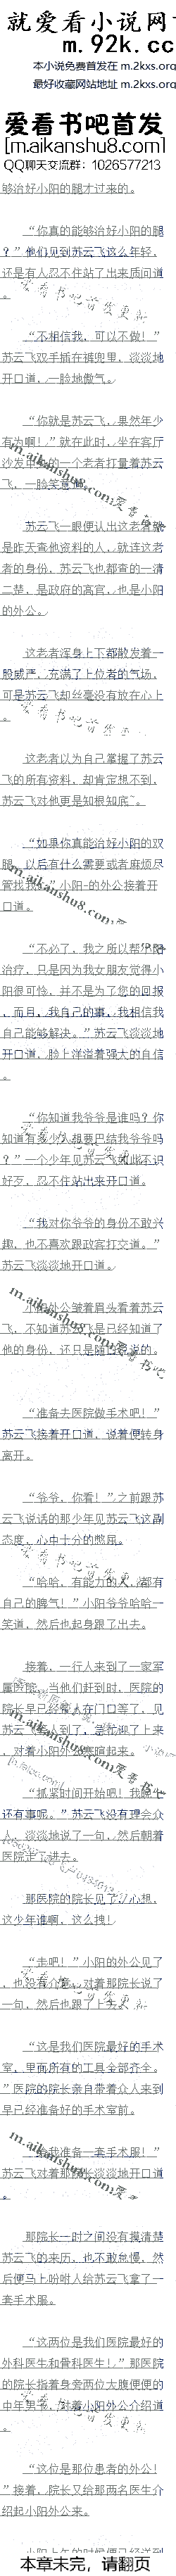 就爱看小说网
m.92k.cc
本小说免费首发在 m.2kxs.org
最好收藏网站地址 m.2kxs.org
爱看书吧首发
[m.aikanshu8.com]
QQ聊天交流群：1026577213
够治好小阳的腿才过来的。
“你真的能够治好小阳的腿
？”他们见到苏云飞这么年轻，
还是有人忍不住站了出来质问道
。
“不相信我，可以不做！”
苏云飞双手插在裤兜里，淡淡地
开口道，一脸地傲气。
“你就是苏云飞，果然年少
有为啊！”就在此时，坐在客厅
沙发里的一个老者打量着苏云
飞，一脸笑意
苏云飞一眼便认出这老者就
是昨天查他资料的人，就连这老
者的身份，苏云飞也都查的一清
二楚，是政府的高官，也是小阳
的外公。
这老者浑身上下都散发着一
股威严，充满了上位者的气场，
可是苏云飞却丝毫没有放在心上
。
这老者以为自己掌握了苏云
飞的所有资料，却肯定想不到，
苏云飞对他更是知根知底~。
“如果你真能治好小阳的双
腿，以后有什么需要或者麻烦尽
管找我！”小阳-的外公接着开
口道。
“不必了，我之所以帮小阳
治疗，只是因为我女朋友觉得小
阳很可怜，并不是为了您的回报
，而且，我自己的事，我相信我
自己能够解决。”苏云飞淡淡地
开口道，脸上洋溢着强大的自信
。
“你知道我爷爷是谁吗？你
知道有多少人想要巴结我爷爷吗
？”一个少年见苏云飞如此不识
好歹，忍不住站出来开口道。
“我对你爷爷的身份不敢兴
趣，也不喜欢跟政客打交道。”
苏云飞淡淡地开口道。
小阳外公皱着眉头看着苏云
飞，不知道苏云飞是已经知道了
他的身份，还只是随口一说的。
“准备去医院做手术吧！”
苏云飞接着开口道，说着便转身
离开。
“爷爷，你看！”之前跟苏
云飞说话的那少年见苏云飞这副
态度，心中十分的憋屈。
“哈哈，有能力的人，都有
自己的脾气！”小阳爷爷哈哈一
笑道，然后也起身跟了出去。
接着，一行人来到了一家军
属医院，当他们赶到时，医院的
院长早已经带人在门口等了，见
苏云飞等人到了，急忙迎了上来
，对着小阳外公寒暄起来。
“抓紧时间开始吧！我晚上
还有事呢。”苏云飞没有理会众
人，淡淡地说了一句，然后朝着
医院走了进去。
那医院的院长见了，心想，
这少年谁啊，这么拽！
“走吧！”小阳的外公见了
，也没有介意，对着那院长说了
一句，然后也跟了上去。
“这是我们医院最好的手术
室，里面所有的工具全部齐全。
”医院的院长亲自带着众人来到
早已经准备好的手术室前。
“给我准备一套手术服！”
苏云飞对着那院长淡淡地开口道
。
那院长一时之间没有摸清楚
苏云飞的来历，也不敢怠慢，然
后便马上吩咐人给苏云飞拿了一
套手术服。
“这两位是我们医院最好的
外科医生和骨科医生！”那医院
的院长指着身旁两位大腹便便的
中年男子，对着小阳外公介绍道
。
“这位是那位患者的外公！
”接着，院长又给那两名医生介
绍起小阳外公来。
本章未完，请翻页